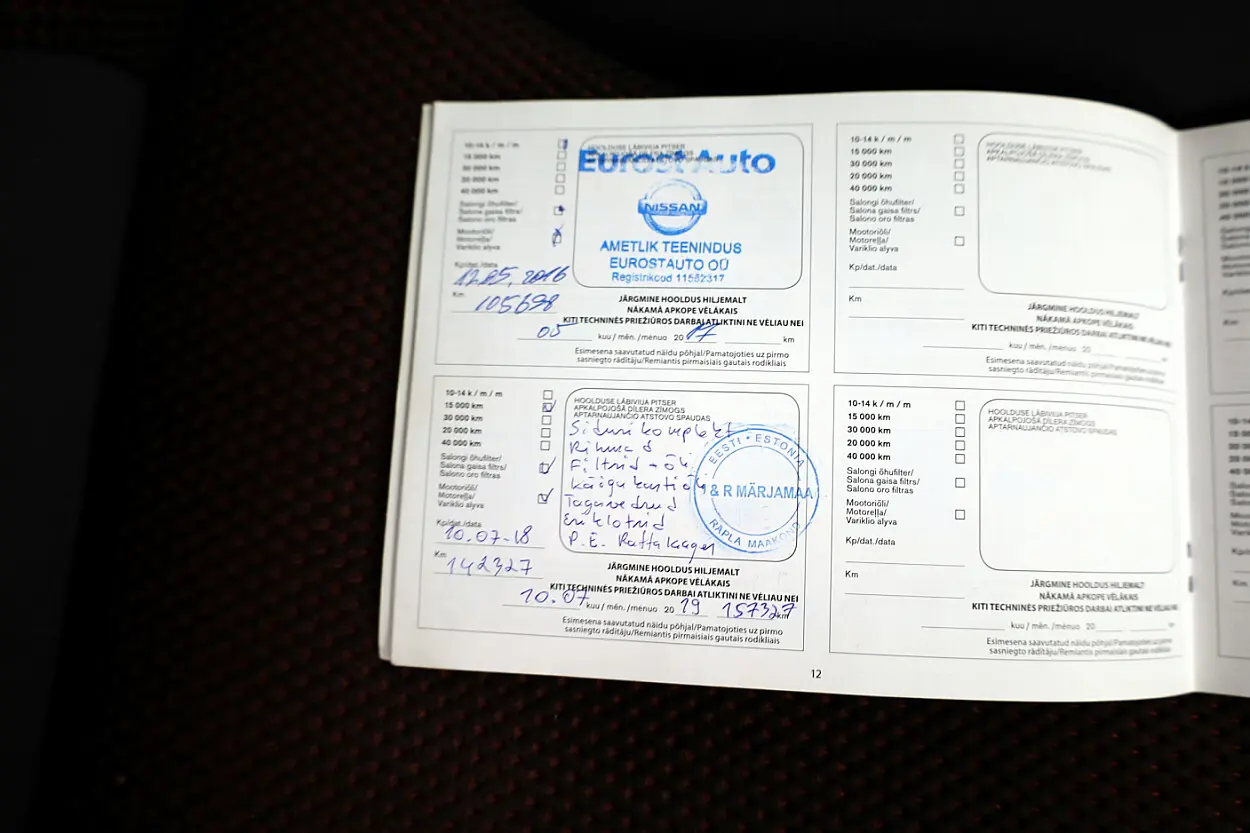 10-14 k / m / m
15 000 km
30 000 km
20 000 km
40 000 km
Salongi õhufilter/
Salona gaisa filtrs/
Salono oro filtras
Mootoriõli/
Motoreļļa/
Variklio alyva
Kp/dat./data
12.05.2016
Km
105698
HOOLDUSE LÄBIVIIJA PITSER
Eurost Auto
NISSAN
AMETLIK TEENINDUS
EUROSTAUTO OÜ
Registrikood 11582317
JÄRGMINE HOOLDUS HILJEMALT
NĀKAMĀ APKOPE VĒLĀKAIS
KITI TECHNINĖS PRIEŽIŪROS DARBAI ATLIKTINI NE VĖLIAU NEI
05 kuu / mēn. /mėnuo 20 17 km
Esimesena saavutatud näidu põhjal/Pamatojoties uz pirmo
sasniegto rādītāju/Remiantis pirmaisiais gautais rodikliais
10-14 k / m / m
15 000 km
30 000 km
20 000 km
40 000 km
Salongi õhufilter/
Salona gaisa filtrs/
Salono oro filtras
Mootoriõli/
Motoreļļa/
Variklio alyva
Kp/dat./data
10.07-18
Km
142327
HOOLDUSE LÄBIVIIJA PITSER
APKALPOJOŠĀ DĪLERA ZĪMOGS
APTARNAUJANČIO ATSTOVO SPAUDAS
Siduri komplekt
Rihmad
Filtrid - õli
käigukastiõli
Tagavedrud
P.E. Rattalaager
EESTI • ESTONIA
& R MÄRJAMAA
RAPLA MAAKOND
JÄRGMINE HOOLDUS HILJEMALT
NĀKAMĀ APKOPE VĒLĀKAIS
KITI TECHNINĖS PRIEŽIŪROS DARBAI ATLIKTINI NE VĖLIAU NEI
10.07 kuu / mēn. /mėnuo 20 19 157327 km
Esimesena saavutatud näidu põhjal/Pamatojoties uz pirmo
sasniegto rādītāju/Remiantis pirmaisiais gautais rodikliais
10-14 k / m / m
15 000 km
30 000 km
20 000 km
40 000 km
Salongi õhufilter/
Salona gaisa filtrs/
Salono oro filtras
Mootoriõli/
Motoreļļa/
Variklio alyva
Kp/dat./data
Km
HOOLDUSE LÄBIVIIJA PITSER
APKALPOJOŠĀ DĪLERA ZĪMOGS
APTARNAUJANČIO ATSTOVO SPAUDAS
JÄRGMINE HOOLDUS HILJEMALT
NĀKAMĀ APKOPE VĒLĀKAIS
KITI TECHNINĖS PRIEŽIŪROS DARBAI ATLIKTINI NE VĖLIAU NEI
kuu / mēn. /mėnuo 20 km
Esimesena saavutatud näidu põhjal/Pamatojoties uz pirmo
sasniegto rādītāju/Remiantis pirmaisiais gautais rodikliais
10-14 k / m / m
15 000 km
30 000 km
20 000 km
40 000 km
Salongi õhufilter/
Salona gaisa filtrs/
Salono oro filtras
Mootoriõli/
Motoreļļa/
Variklio alyva
Kp/dat./data
Km
HOOLDUSE LÄBIVIIJA PITSER
APKALPOJOŠĀ DĪLERA ZĪMOGS
APTARNAUJANČIO ATSTOVO SPAUDAS
JÄRGMINE HOOLDUS HILJEMALT
NĀKAMĀ APKOPE VĒLĀKAIS
KITI TECHNINĖS PRIEŽIŪROS DARBAI ATLIKTINI NE VĖLIAU NEI
kuu / mēn. /mėnuo 20 km
Esimesena saavutatud näidu põhjal/Pamatojoties uz pirmo
sasniegto rādītāju/Remiantis pirmaisiais gautais rodikliais
12